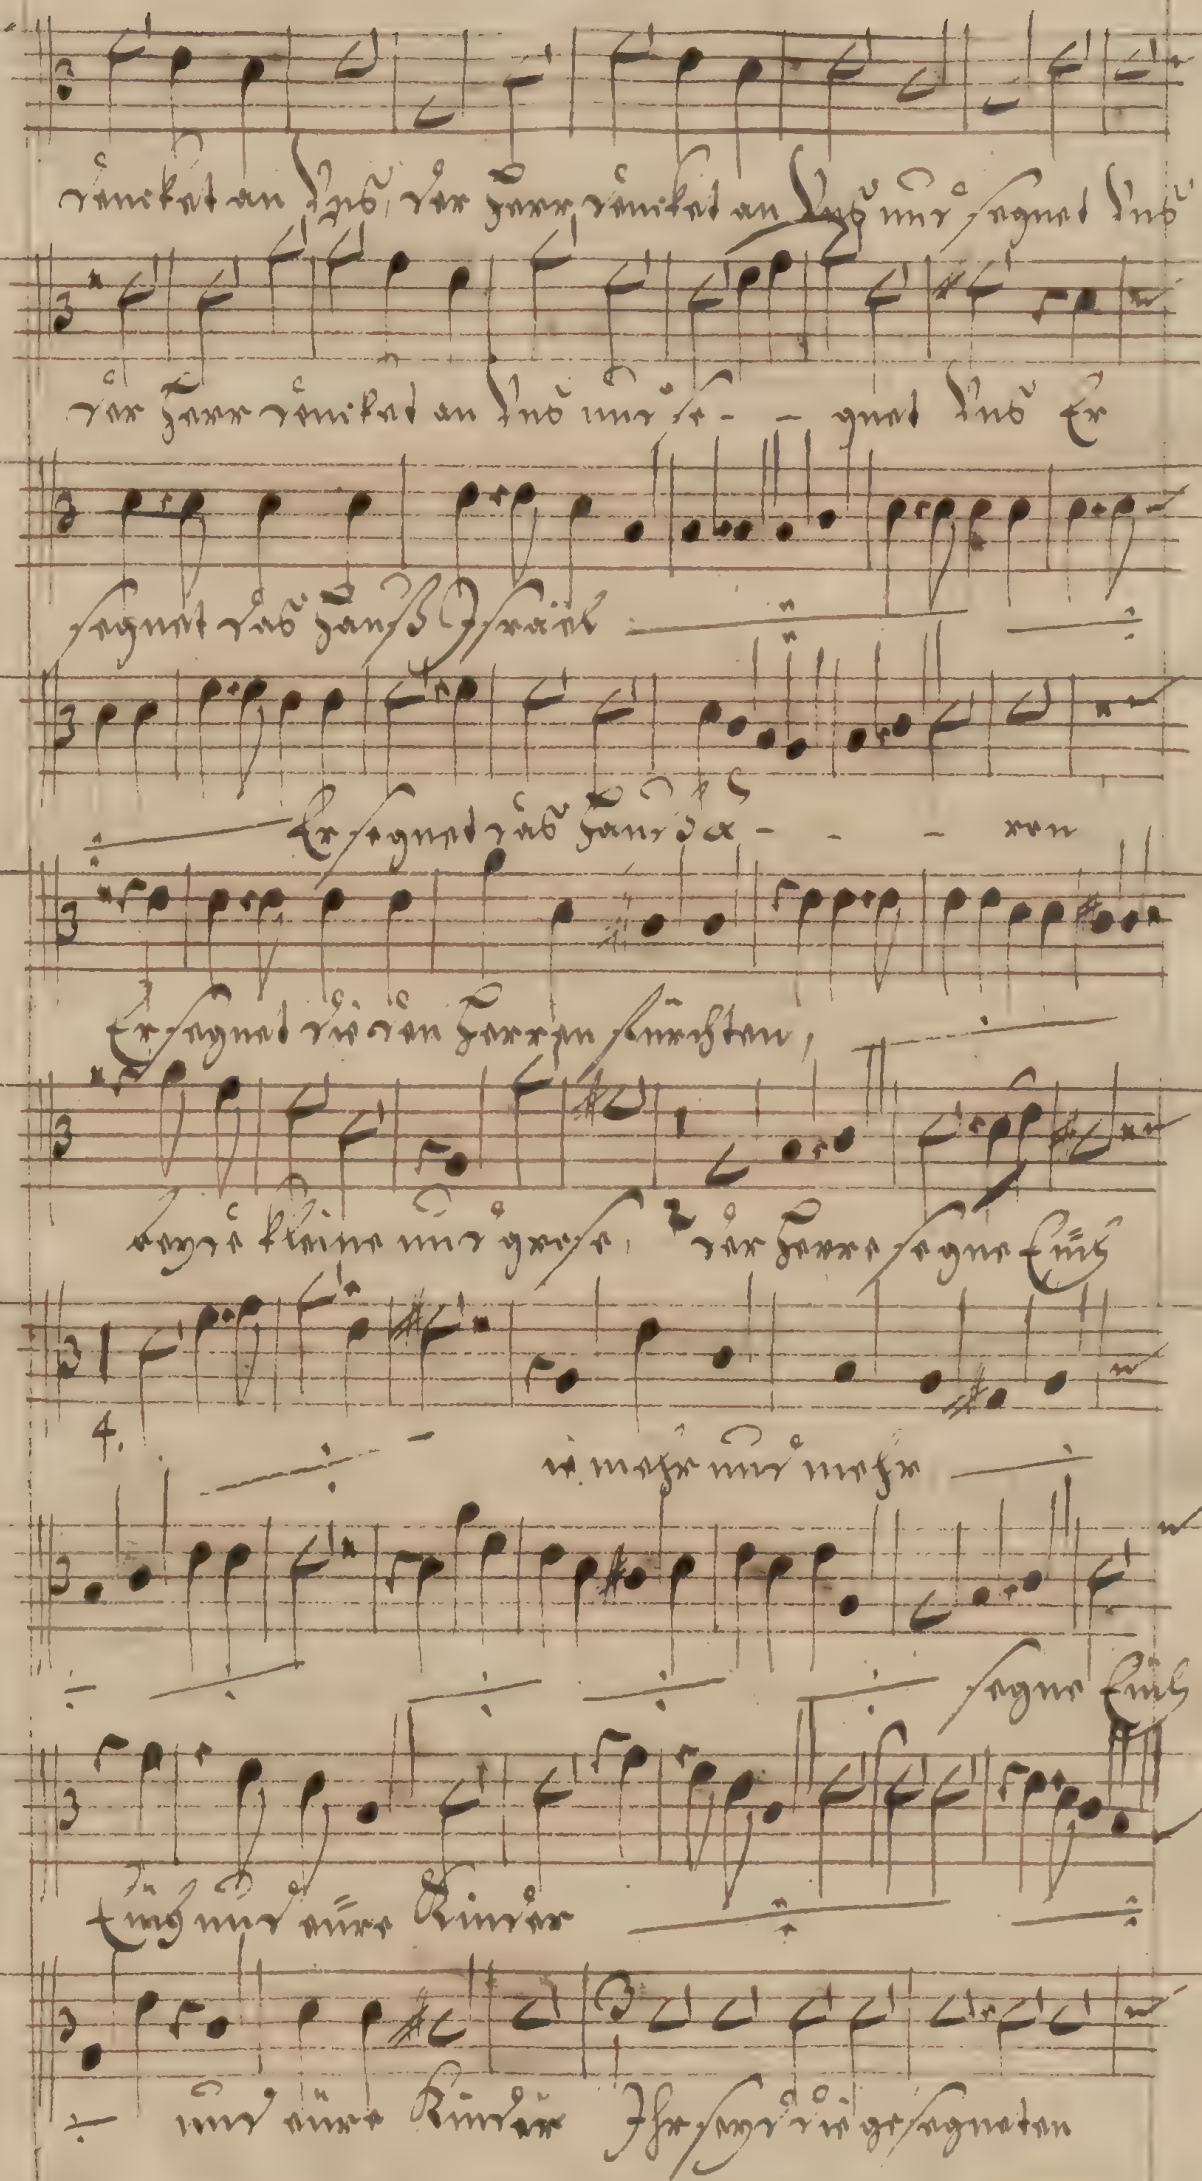 dencket an Uns, der Herr dencket an Uns und segnet Uns
der Herr dencket an Uns und se - - gnet Uns Er
segnet das Hauß Israël
Er segnet das Hauß Aa - - - ron
Er segnet die den Herren fürchten,
beyde kleine und grose, der Herre segne Euch
4.
ie mehr und mehr
segne Euch
Euch und eüre Kinder
und eüre Kinder Ihr seyd die gesegneten